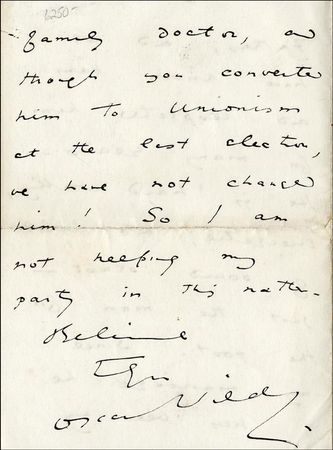 family doctor, an
though you converte
him to Unionism
at the last election,
we have not change
him! So I am
not helping my
party in this matter.
Believe
Oscar Wilde